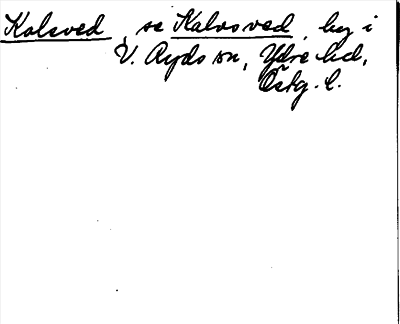 Kolsved, se Kalvsved, by i
V. Ryds sn, Ydre hd,
Östg. l.